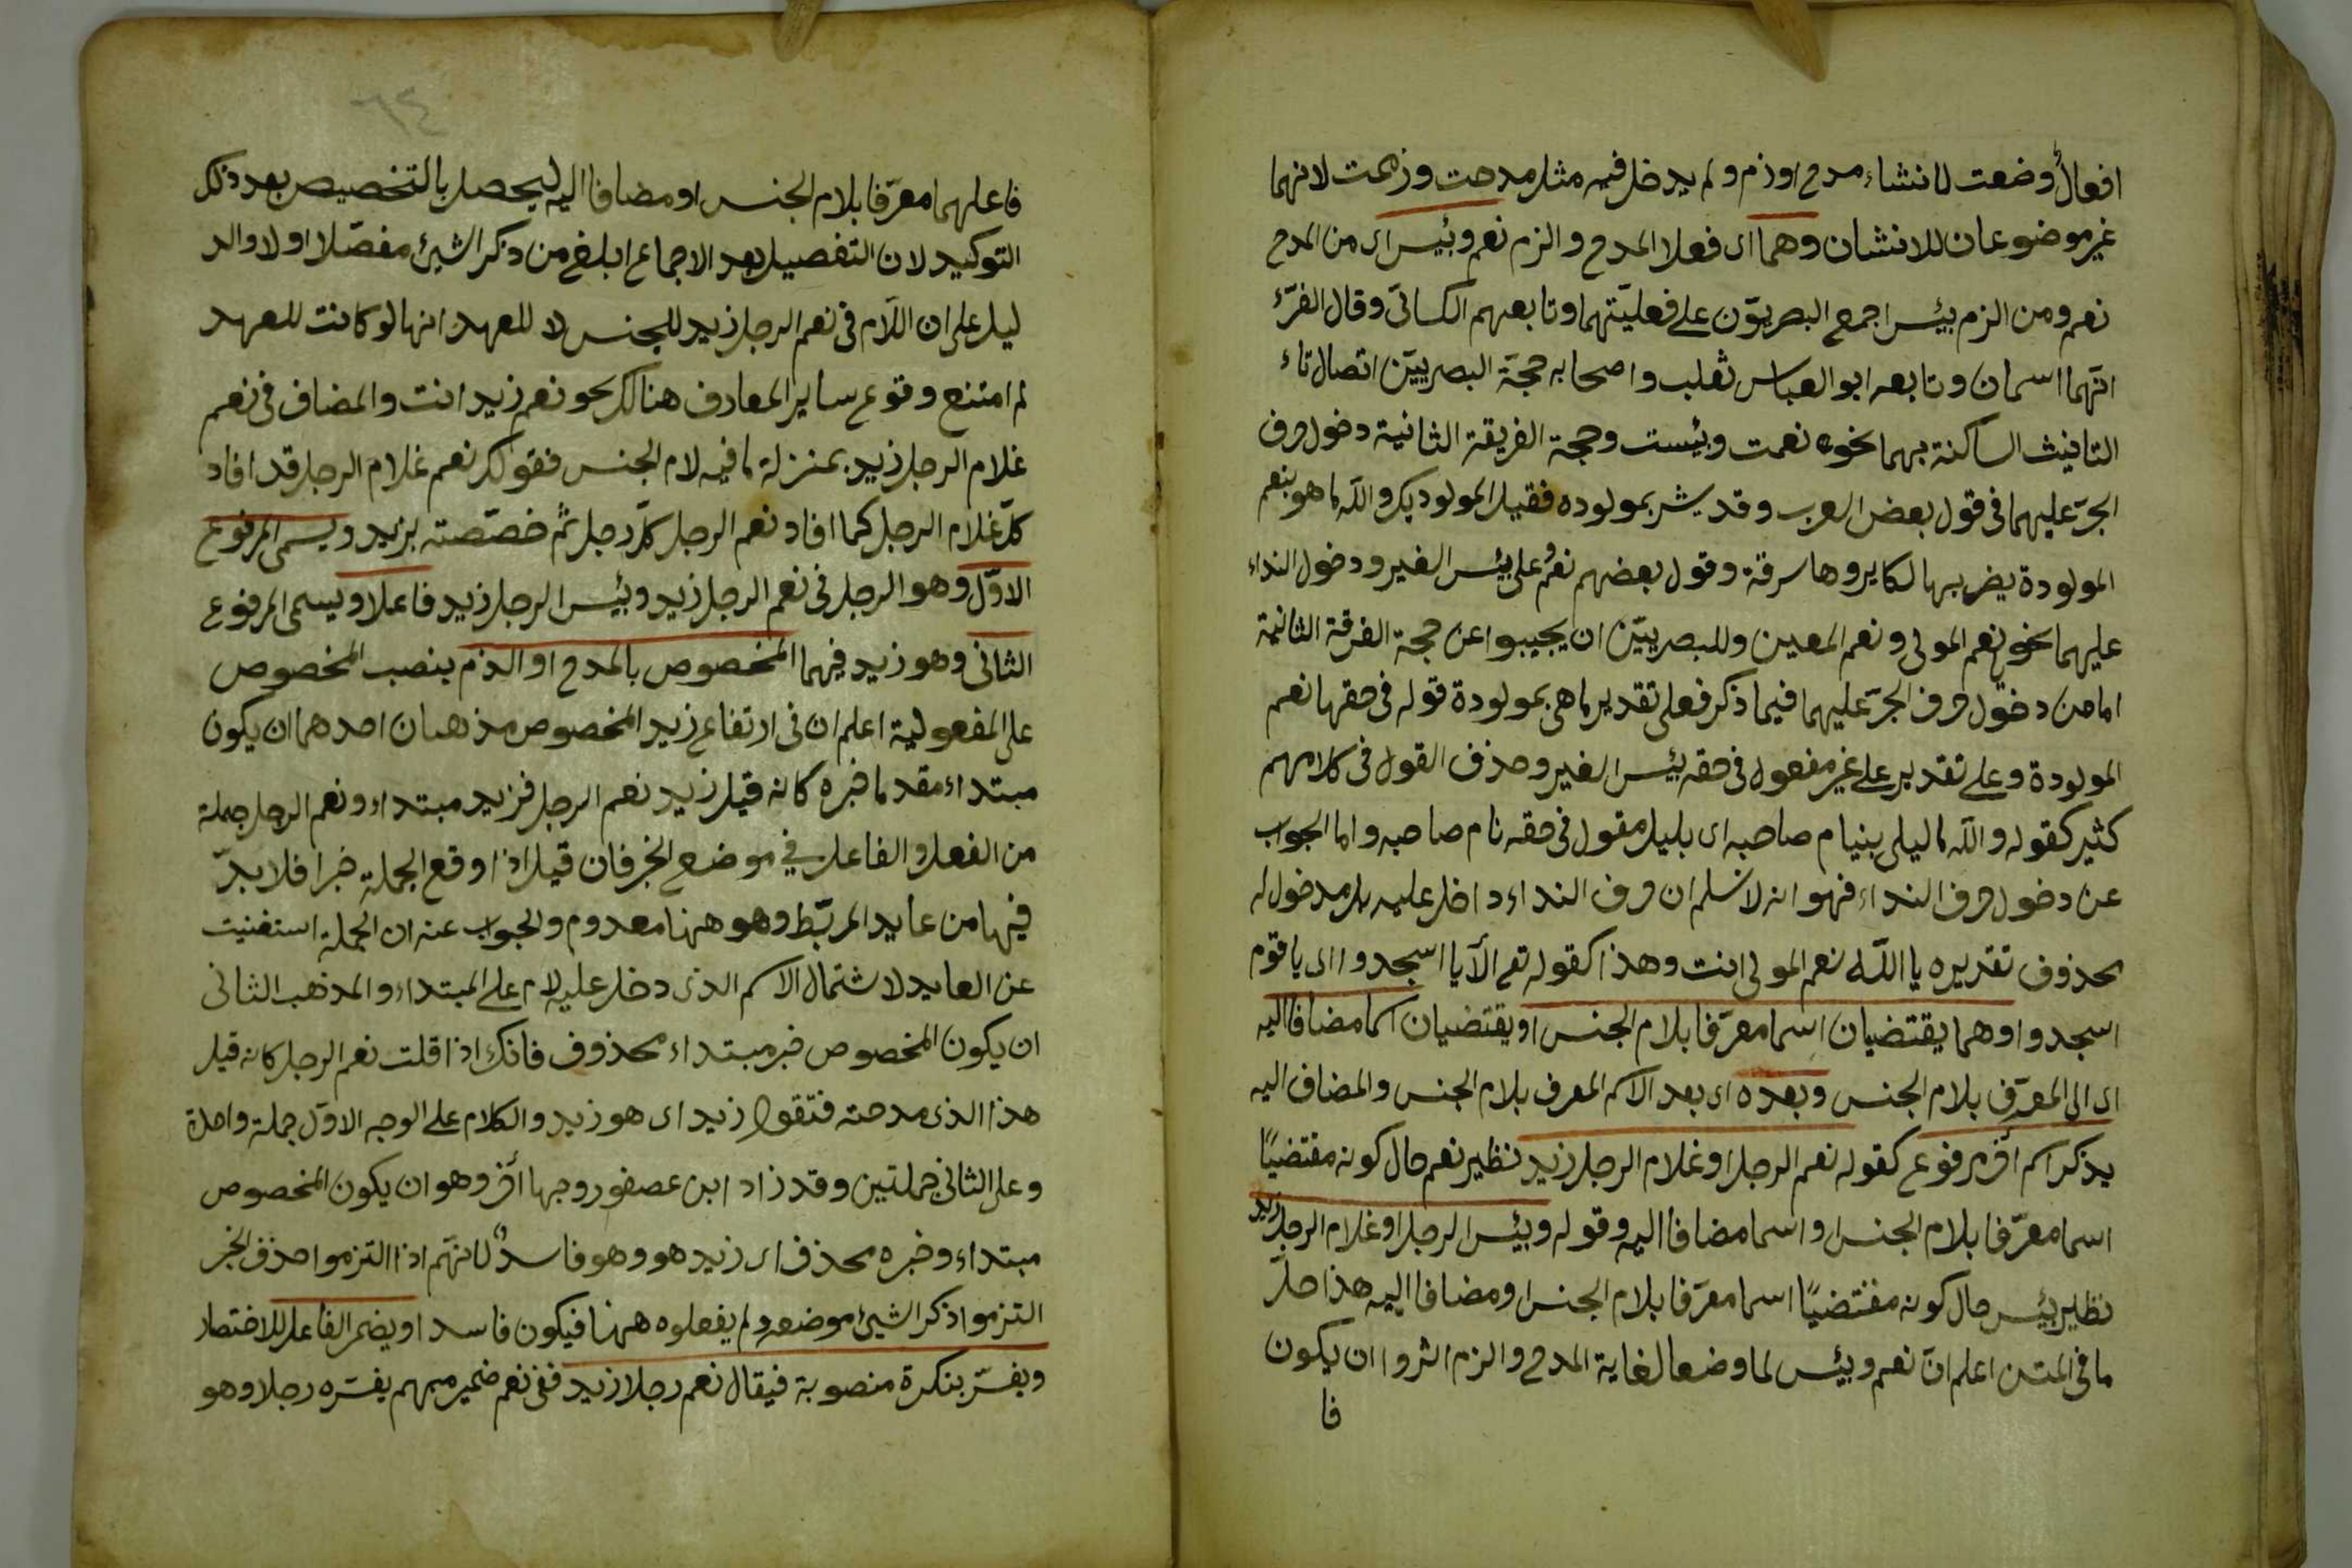 افعال وضعت لانشاء مدح او ذم ولم يدخل فيه مثل مدحت وذممت لانهما
غير موضوعان للانشان وهما اى فعلا المدح والذم نعم وبئس اى من المدح
نعم ومن الذم بيئس اجمع البصريّون على فعليّتهما وتابعهم الكسائىّ وقال الفرّء
انّهما اسمان وتابعه ابو العباس ثعلب واصحابه حجّة البصريّين اتصال تاء
التانيث الساكنة بهما نحو نعمت وبئست وحجة الفريقة الثانية دخول حرف
الجرّ عليهما فى قول بعض العرب وقد بشر بمولوده فقيل المولوديك والله ما هو بنعم
المولودة وقول بعضهم نعم على بئس العير ودخول النداء
عليهما نحو يا نعم المولى ونعم المعين وللبصريّين ان يجيبوا عن حجة الفرقة الثانية
اما من دخول حرف الجرّ عليهما فيما ذكر فعلى تقدير ما هى بمولودة قوله فى حقها نعم
المولودة وعلى تقدير على غير مفعول فى حقه بئس العير وحذف القول فى كلامهم
كثير كقوله والله ما ليلى بنيام صاحبه اى بليل مقول فى حقه نام صاحبه واما الجواب
عن دخول حرف النداء فهو انه لا نسلم ان حرف النداء داخل عليه بل مدخول له
محذوف تقديره يا اللّه نعم المولى انت وهذا كقوله تع الّا يا اسجدوا اى يا قوم
اسجدوا وهما يقتضيان اسما معرّفا بلام الجنس او يقتضيان اسما مضافا اليه
اى الى المعرّف بلام الجنس وبعده اى بعد الاسم المعرف بلام الجنس والمضاف اليه
يذكر اسم آخر مرفوع كقوله نعم الرجل او غلام الرجل زيد نظير نعم حال كونه مقتضيًا
اسما معرّفا بلام الجنس واسما مضافا اليه وقوله وبئس الرجل او غلام الرجل زيد
نظير بئس حال كونه مقتضيًا اسما معرّفا بلام الجنس او مضافا اليه هذا حلّ
ما فى المتن اعلم انّ نعم وبئس لما وضعا لغاية المدح والذم اثروا ان يكون
فا
٦٤
فاعلهما معرّفا بلام الجنس او مضافا اليه ليحصل بالتخصيص بعد ذلك
التوكيد لان التفصيل بعد الاجماع ابلغ من ذكر الشيئ مفصّلا اولا والد
ليل على ان اللّام فى نعم الرجل زيد للجنس لا للعهد انها لو كانت للعهد
لم امتنع وقوع ساير المعارف هنالك نحو نعم زيد انت والمضاف فى نعم
غلام الرجل زيد بمنزلة ما فيه لام الجنس فقولك نعم غلام الرجل قد افاد
كلّ غلام الرجل كما افاد نعم الرجل كلّ رجل ثمّ خصّصته بزيد ويسمى المرفوع
الاوّل وهو الرجل فى نعم الرجل زيد وبئس الرجل زيد فاعلا ويسمى المرفوع
الثانى وهو زيد فيهما المخصوص بالمدح او الذم بنصب المخصوص
على المفعولية اعلم ان فى ارتفاع زيد المخصوص مذهبان احدهما ان يكون
مبتداء مقدما خبره كانه قيل زيد نعم الرجل فزيد مبتداء ونعم الرجل جملة
من الفعل والفاعل فى موضع الخبر فان قيل اذا وقع الجملة خبرا فلا بدّ
فيها من عايد المربّط وهو ههنا معدوم والجواب عنه ان الجملة استغنيت
عن العايد لاشتمال الاسم الذى دخل عليه لام على المبتداء والمذهب الثانى
ان يكون المخصوص خبر مبتداء محذوف فانك اذا قلت نعم الرجل كانه قيل
هذا الذى مدحته فتقول زيد اى هو زيد والكلام على الوجه الاوّل جملة واحدة
وعلى الثانى جملتين وقد زاد ابن عصفور وجها آخر وهو ان يكون المخصوص
مبتداء وخبره محذف اى زيد هو وهو فاسد لانّهم اذا التزموا حذف الخبر
التزموا ذكر الشيئ موضعه ولم يفعلوه ههنا فيكون فاسد او يضمر الفاعل للاختصار
ويفسّر بنكرة منصوبة فيقال نعم رجلا زيد ففى نعم ضمير مبهم يفسّره رجلا وهو